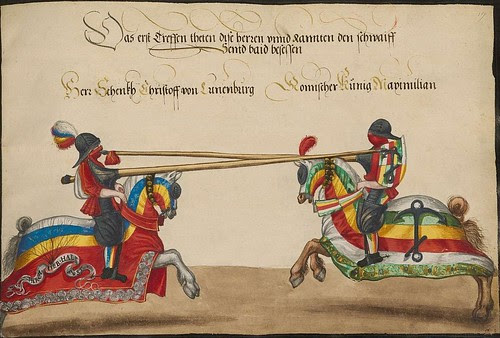 Das erst Treffen theten dise herren vnnd Rannten den schwaiff
Seind baid besessen
Her: Schenkh Christoff von Lunenburg
Romischer Künig Maximilian
HAB